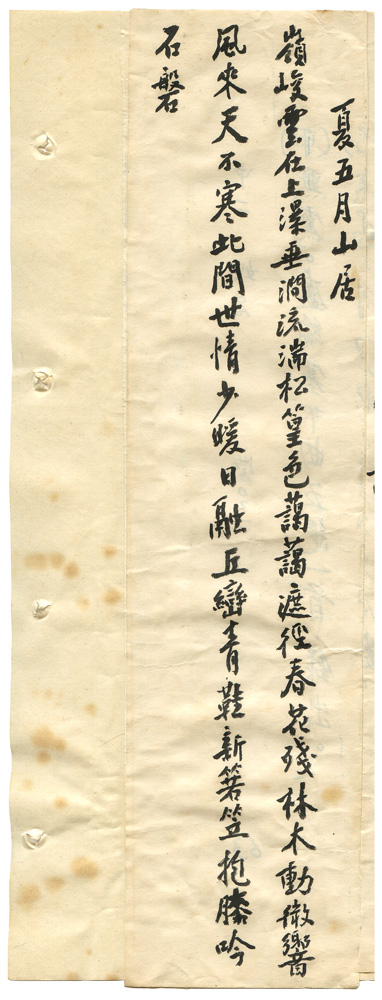 夏五月山居
嶺峻雲在上瀑垂澗流湍松篁色藹藹遮徑春花殘林木動微響
風來天不寒此間世情少暖日融丘巒青鞋新箬笠抱膝吟
石磐